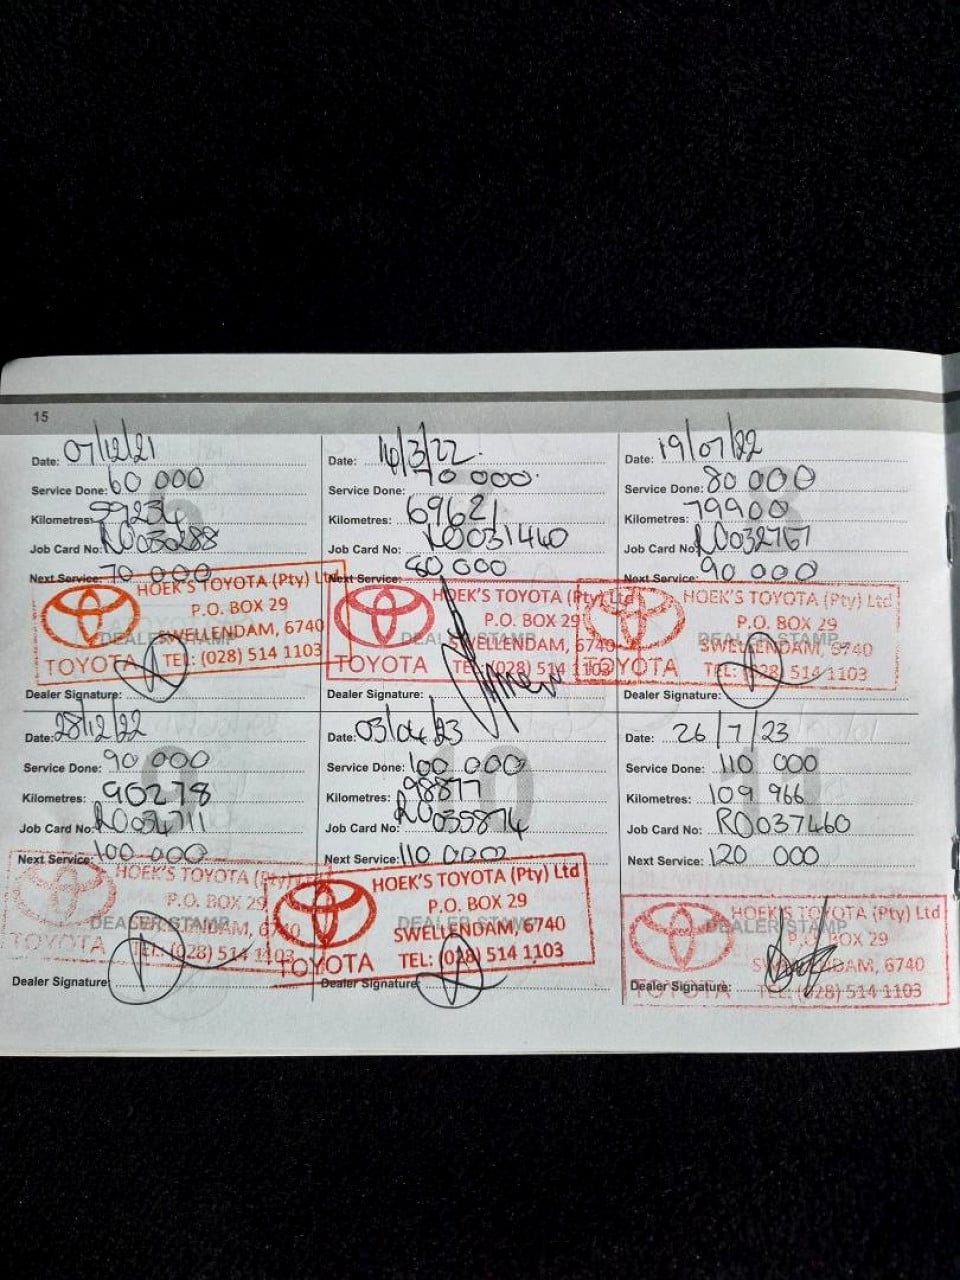 15
Date: 07/12/21
Service Done: 60 000
Kilometres: 59234
Job Card No: RO030288
Next Service: 70 000
DEALER STAMP
HOEK'S TOYOTA (Pty) Ltd
P.O. BOX 29
SWELLENDAM, 6740
TOYOTA TEL: (028) 514 1103
Dealer Signature:
Date: 14/3/22.
Service Done: 70 000.
Kilometres: 69621
Job Card No: RO031440
Next Service: 80 000
DEALER STAMP
HOEK'S TOYOTA (Pty) Ltd
P.O. BOX 29
SWELLENDAM, 6740
TOYOTA TEL: (028) 514 1103
Dealer Signature:
Date: 19/07/22
Service Done: 80 000
Kilometres: 79900
Job Card No: RO032767
Next Service: 90 000
8
DEALER STAMP
HOEK'S TOYOTA (Pty) Ltd
P.O. BOX 29
SWELLENDAM, 6740
TOYOTA TEL: (028) 514 1103
Dealer Signature:
Date: 28/12/22
Service Done: 90 000
Kilometres: 90278
Job Card No: RO034711
Next Service: 100 000
9
DEALER STAMP
HOEK'S TOYOTA (Pty) Ltd
P.O. BOX 29
SWELLENDAM, 6740
TOYOTA TEL: (028) 514 1103
Dealer Signature:
Date: 03/04/23
Service Done: 100 000
Kilometres: 98877
Job Card No: RO035874
Next Service: 110 000
10
DEALER STAMP
HOEK'S TOYOTA (Pty) Ltd
P.O. BOX 29
SWELLENDAM, 6740
TOYOTA TEL: (028) 514 1103
Dealer Signature:
Date: 26/7/23
Service Done: 110 000
Kilometres: 109 966
Job Card No: RO037460
Next Service: 120 000
11
DEALER STAMP
HOEK'S TOYOTA (Pty) Ltd
P.O. BOX 29
SWELLENDAM, 6740
TOYOTA TEL: (028) 514 1103
Dealer Signature: